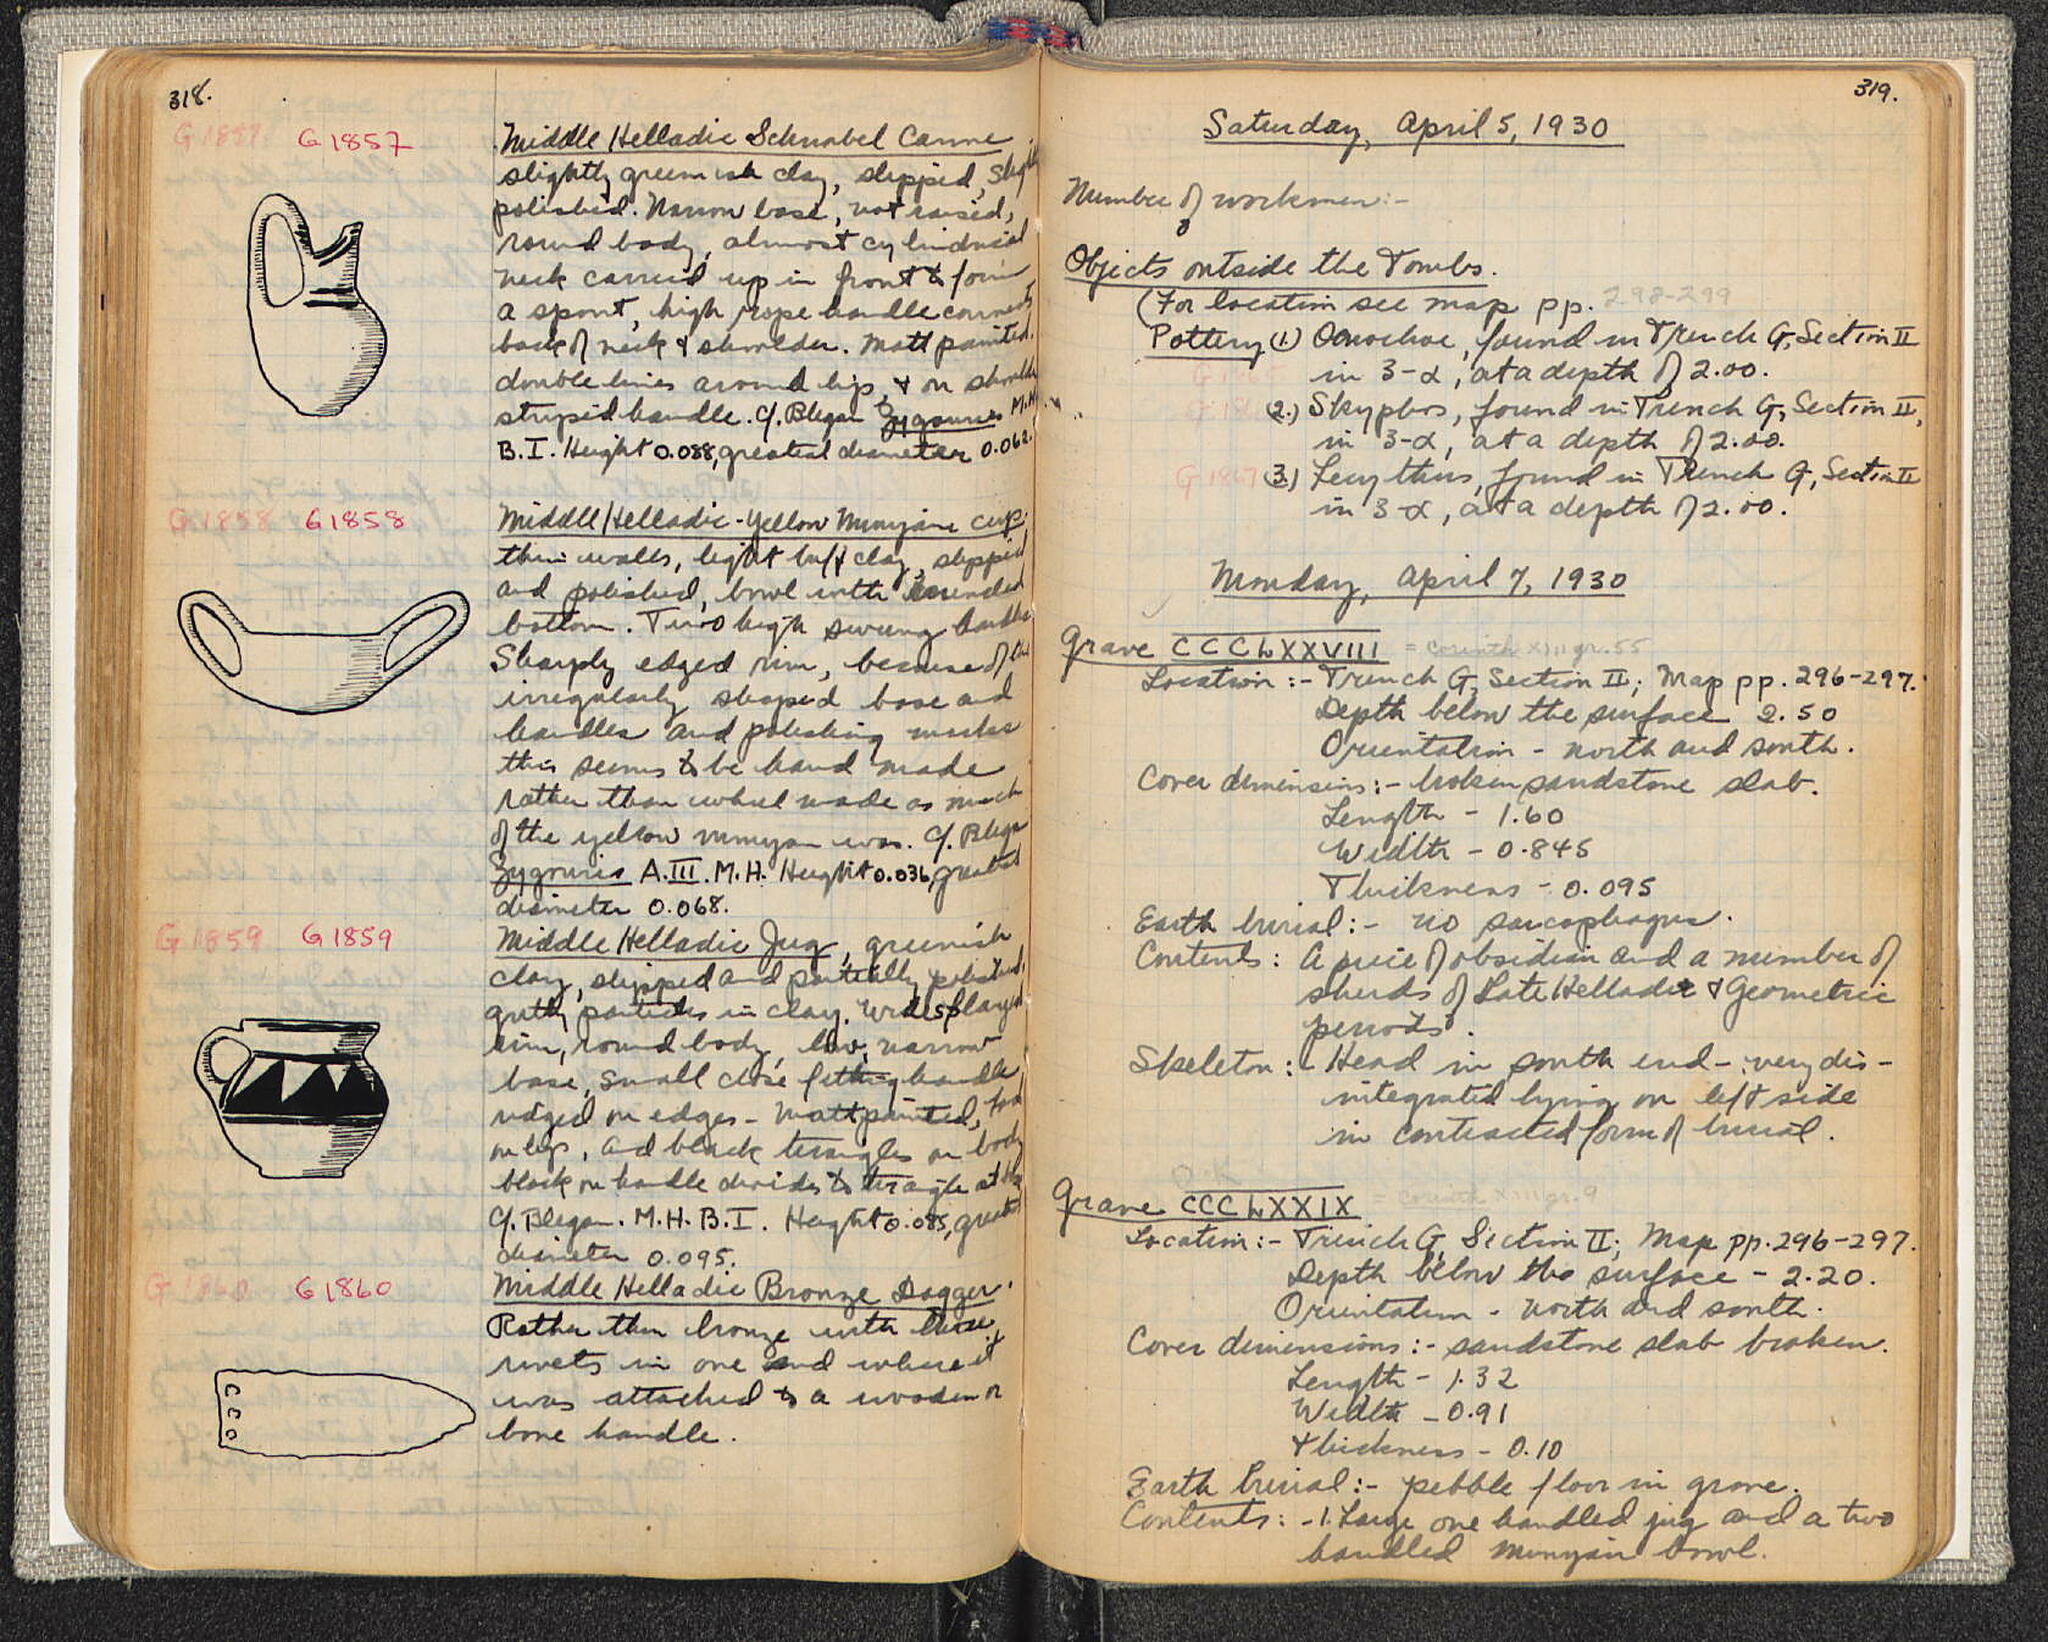 318.
G 1857 G 1857
Middle Helladic Schnabel Canne
slightly greenish clay, slipped,
polished. Narrow base, not raised,
round body, almost cylindrical
neck carried up in front to form
a spout, high rope handle connects
back of neck & shoulder. Matt painted.
double lines around lip, & on
striped handle. cf. Blegen Zygouries M.H.
B.I. Height 0.088, greatest diameter 0.062.
G 1858 G 1858
Middle Helladic - Yellow Minyan cup,
thin walls, light buff clay, slipped
and polished, bowl with rounded
bottom. Two high swung handles
Sharply edged rim, because of the
irregularly shaped base and
handles and polishing marks
this seems to be hand made
rather than wheel made as much
of the yellow minyan was. cf. Blegen
Zygouries A.III. M.H. Height 0.036, greatest
diameter 0.068.
G 1859 G 1859
Middle Helladic Jug, greenish
clay, slipped and partially polished,
gritty particles in clay. Wide splayed
rim, round body, low, narrow
base, small close fitting handle
ridged on edges - Matt painted,
on lip, and black triangles on body
black on handle divides to triangle at
cf. Blegen. M.H. B.I. Height 0.085, greatest
diameter 0.095.
G 1860 G 1860
Middle Helladic Bronze Dagger.
Rather thin bronze with three
rivets in one end where it
was attached to a wooden or
bone handle.
319.
Saturday, April 5, 1930
Number of workmen:-
Objects outside the Tombs.
(For location see map pp. 298-299
Pottery (1.) Oenochoe, found in Trench G, Section II
in 3-α, at a depth of 2.00.
(2.) Skyphos, found in Trench G, Section II,
in 3-α, at a depth of 2.00.
G 1867 (3.) Lecythus, found in Trench G, Section II
in 3-α, at a depth of 2.00.
Monday, April 7, 1930
Grave CCCLXXVIII = Corinth XIII gr. 55
Location:- Trench G, Section II; Map pp. 296-297.
Depth below the surface 2.50
Orientation - north and south.
Cover dimensions:- broken sandstone slab.
Length - 1.60
Width - 0.845
Thickness - 0.095
Earth burial:- no sarcophagus.
Contents: A piece of obsidian and a number of
sherds of Late Helladic & Geometric
periods.
Skeleton:- Head in south end - very dis-
integrated lying on left side
in contracted form of burial.
Grave CCCLXXIX = Corinth XIII gr. 9
Location:- Trench G, Section II; Map pp. 296-297.
Depth below the surface - 2.20.
Orientation - north and south.
Cover dimensions:- sandstone slab broken.
Length - 1.32
Width - 0.91
Thickness - 0.10
Earth burial:- pebble floor in grave.
Contents: - 1. Large one handled jug and a two
handled Minyan bowl.